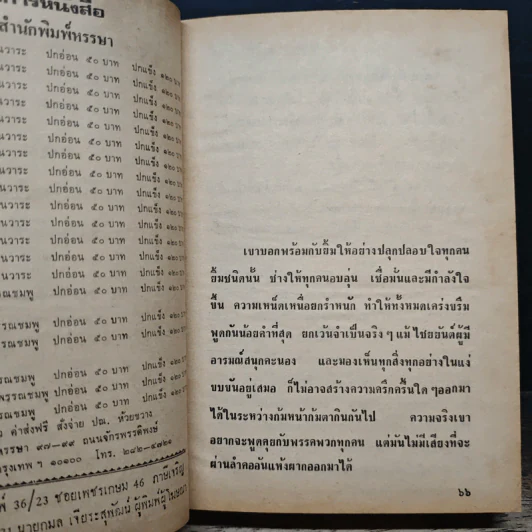 การหนังสือ
สำนักพิมพ์หรรษา
นวาระ ปกอ่อน ๕๐ บาท ปกแข็ง ๑๒๐ บาท
นวาระ ปกอ่อน ๕๐ บาท ปกแข็ง ๑๒๐ บาท
นวาระ ปกอ่อน ๕๐ บาท ปกแข็ง ๑๒๐ บาท
นวาระ ปกอ่อน ๕๐ บาท ปกแข็ง ๑๒๐ บาท
นวาระ ปกอ่อน ๕๐ บาท ปกแข็ง ๑๒๐
นวาระ ปกอ่อน ๕๐ บาท ปกแข็ง ๑๒๐
นวาระ ปกอ่อน ๕๐ บาท ปกแข็ง ๑๒๐
นวาระ ปกอ่อน ๕๐ บาท ปกแข็ง ๑๒๐
นวาระ ปกอ่อน ๕๐ บาท ปกแข็ง ๑๒๐
นวาระ ปกอ่อน ๕๐ บาท ปกแข็ง ๑๒๐
นวาระ ปกอ่อน ๕๐ บาท ปกแข็ง ๑๒๐
นวาระ ปกอ่อน ๕๐ บาท ปกแข็ง ๑๒๐
รณชมพู ปกอ่อน ๕๐ บาท ปกแข็ง ๑๒๐
ปกอ่อน ๕๐ บาท ปกแข็ง ๑๒๐
รรณชมพู ปกอ่อน ๕๐ บาท ปกแข็ง ๑๒๐
รณชมพู ปกอ่อน ๕๐ บาท ปกแข็ง ๑๒๐
พรรณชมพู ปกอ่อน ๕๐ บาท ปกแข็ง ๑๒๐
รรณชมพู ปกอ่อน ๕๐ บาท ปกแข็ง ๑๒๐
ค่าส่งฟรี สั่งจ่าย ปณ. ห้วยขวาง
รรษา ๙๗–๙๙ ถนนจักรพรรดิพงษ์
กรุงเทพฯ ๑๐๑๐๐ โทร. ๒๘๒–๔๗๒๑
พ์ 36/23 ซอยเพชรเกษม 46 ภาษีเจริญ
นายกมล เจียระสุพัฒน์ ผู้พิมพ์ผู้โฆษณา
เขาบอกพร้อมกับยิ้มให้อย่างปลุกปลอบใจทุกคน
ยิ้มชนิดนั้น ช่างให้ทุกคนอบอุ่น เชื่อมั่นและมีกำลังใจ
ขึ้น ความเหน็ดเหนื่อยกรำหนัก ทำให้ทั้งหมดเคร่งขรึม
พูดกันน้อยคำที่สุด ยกเว้นจำเป็นจริงๆ แม้ไชยยันต์ผู้มี
อารมณ์สนุกคะนอง และมองเห็นทุกสิ่งทุกอย่างในแง่
ขบขันอยู่เสมอ ก็ไม่อาจสร้างความครึกครื้นใดๆ ออกมา
ได้ในระหว่างก้มหน้าก้มตากินกันไป ความจริงเขา
อยากจะพูดคุยกับพรรคพวกทุกคน แต่มันไม่มีเสียงที่จะ
ผ่านลำคออันแห้งผากออกมาได้
๖๖